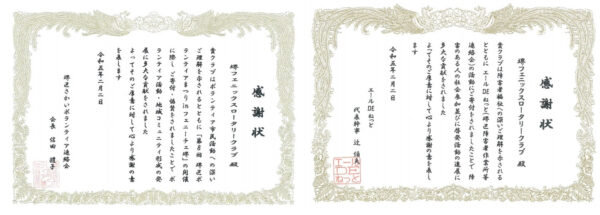 感謝状
堺フェニックスロータリークラブ 殿
貴クラブはボランティア市民活動への深い
ご理解を示されるとともに「第8回 堺区ボ
ランティアまつり in フェニーチェ堺」の開催
に際し、ご寄付・協賛をされましたことで ボ
ランティア活動・地域コミュニティ形成の発
展に多大な貢献をされました
よってそのご厚意に対して心より感謝の意
を表します
令和五年二月二日
堺区さかいボランティア連絡会
会長 信田 禮子
感謝状
堺フェニックスロータリークラブ 殿
貴クラブは障害者福祉への深いご理解を示される
とともに エールDEねっと(堺区障害者作業所等
連絡会)の活動にご寄付をされましたことで 障
害のある人の社会参加並びに啓発活動の進展に
多大な貢献をされました
よってそのご厚意に対して心より感謝の意を表し
ます
令和五年二月二日
エールDEねっと
代表幹事 辻